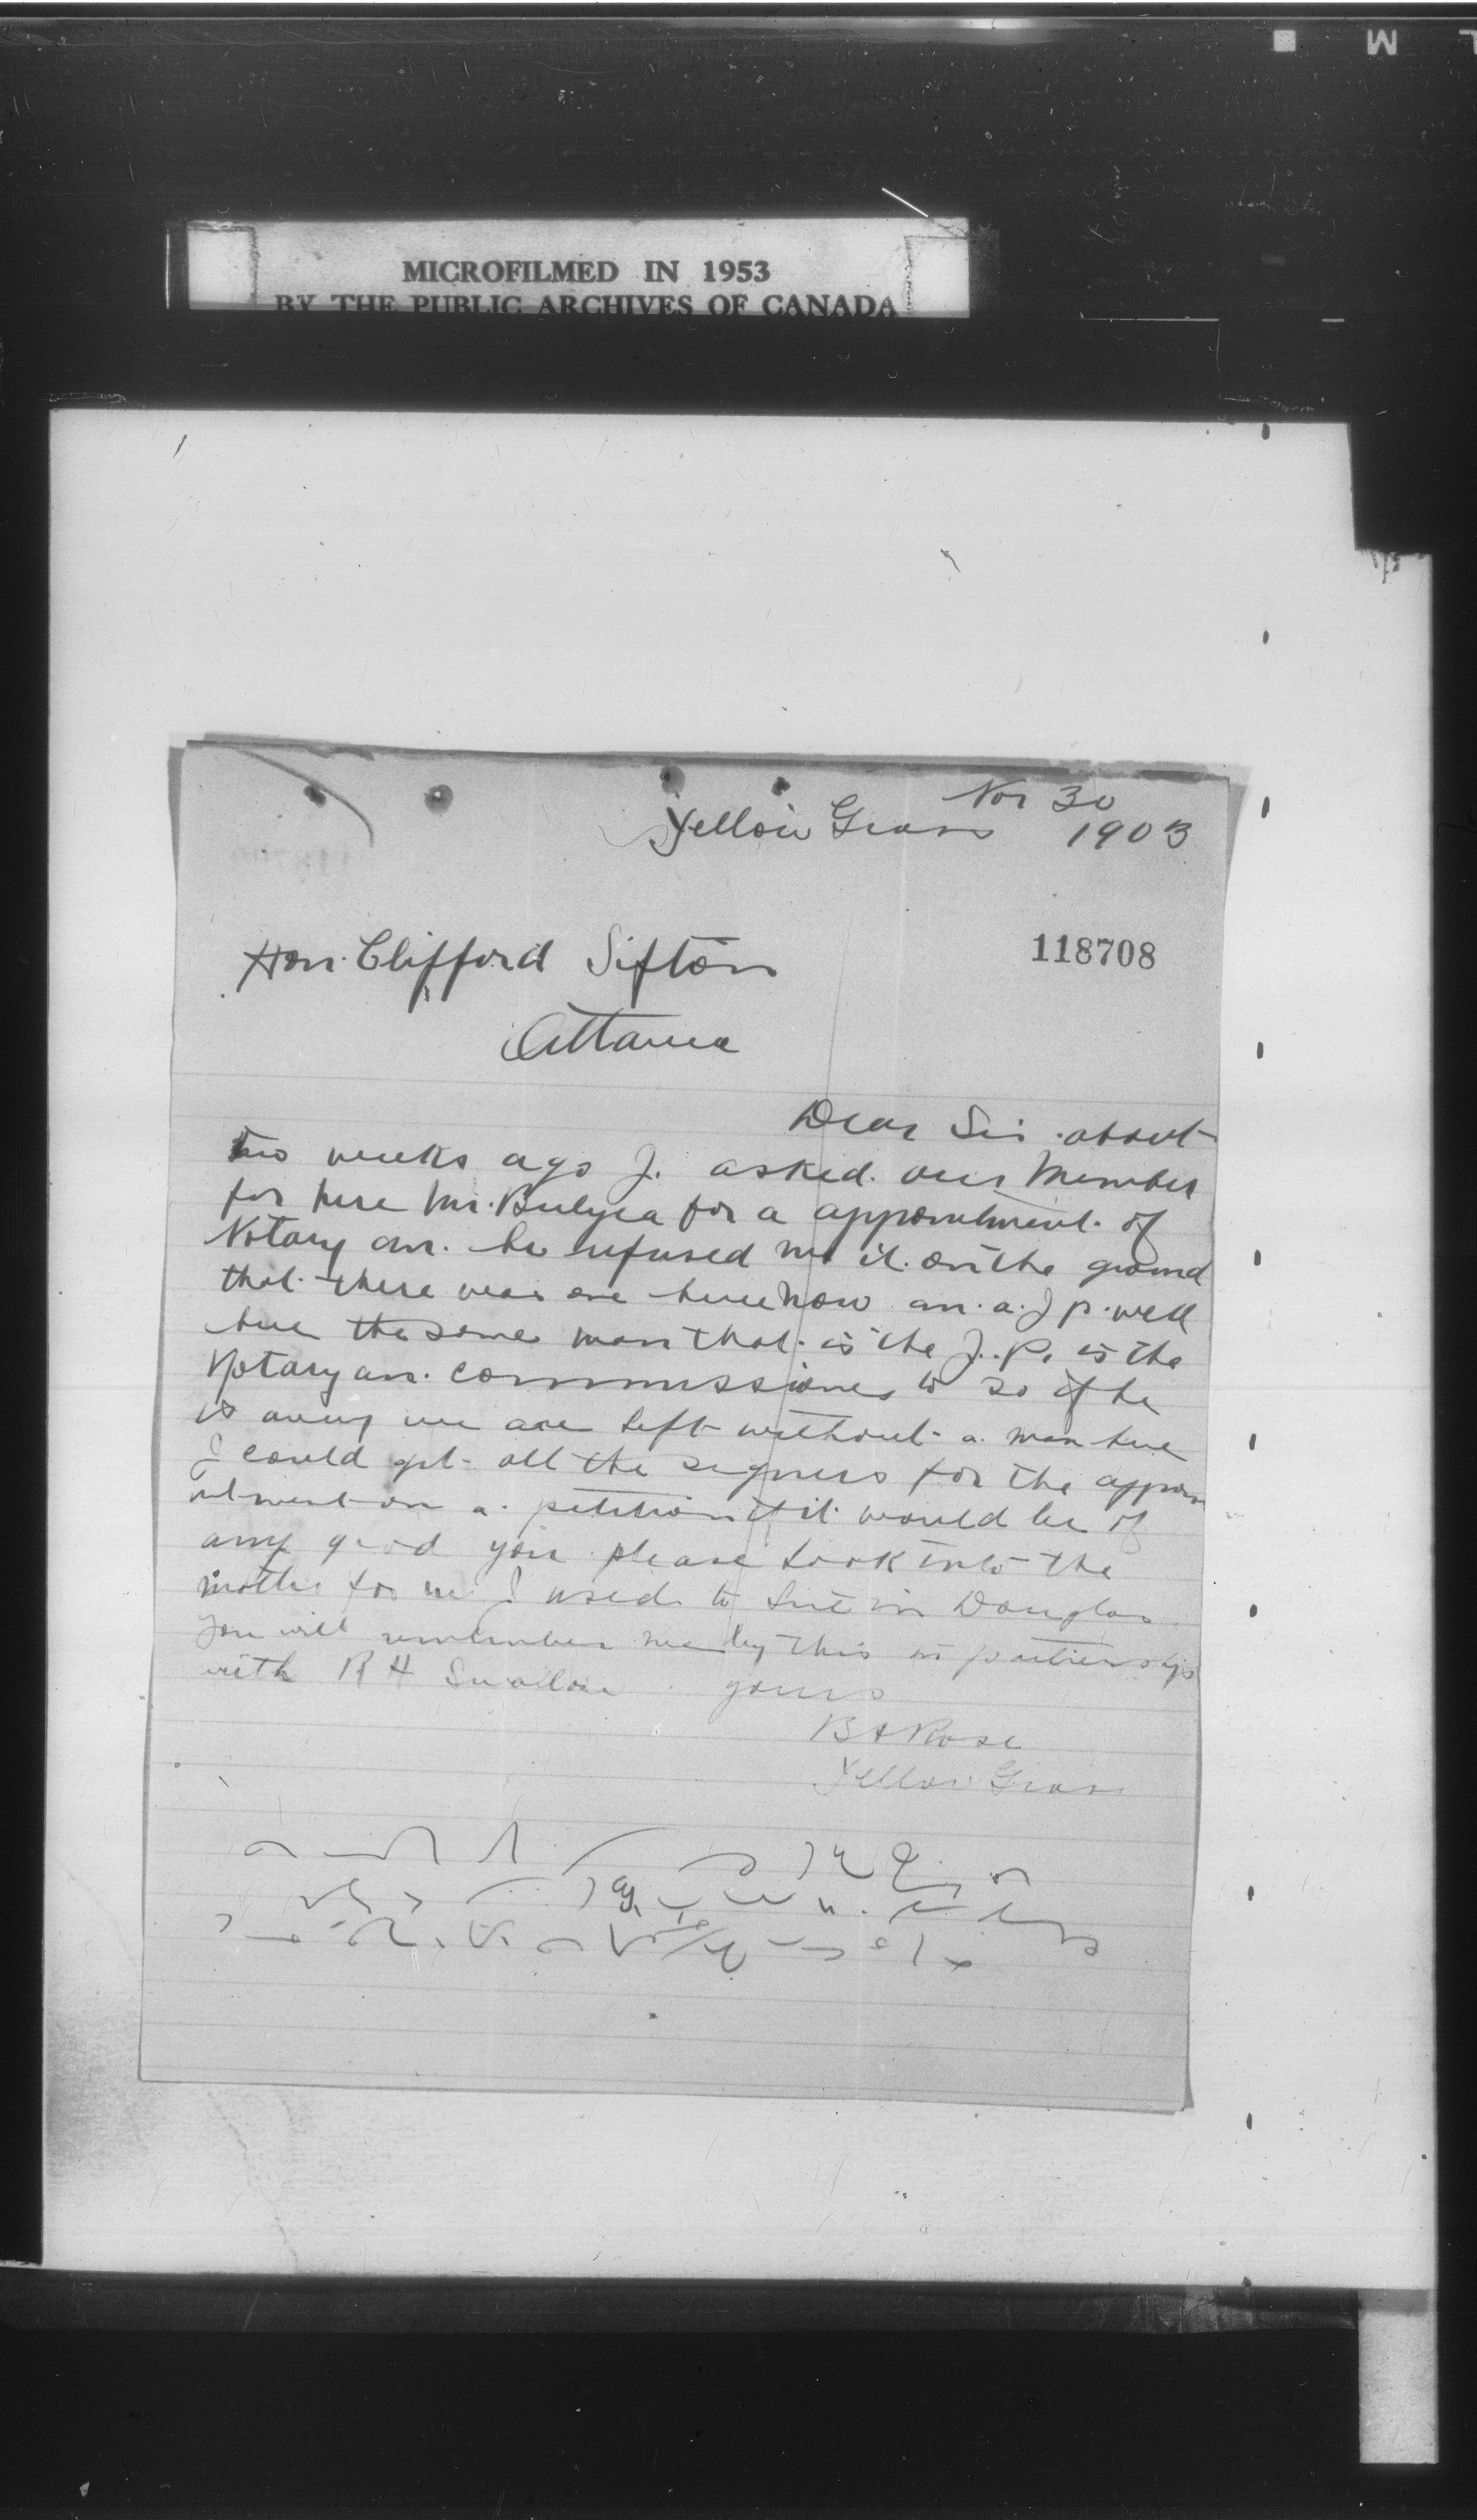 M
MICROFILMED IN 1953
BY THE PUBLIC ARCHIVES OF CANADA
Nov 30
Yellow Grass 1903
Hon. Clifford Sifton
118708
Ottawa
Dear Sir. about
two weeks ago I. asked. our Member
for here Mr. Bulyea for a appointment. of
Notary an. he refused me it. on the ground
that. there was one here now an. a. J P. well
here the same man that. is the J. P. is the
Notary an. commissioner to so if he
is away we are left without a. man here
I could get all the signers for the appoin
ntment on a. petition if it. would be of
any good you please look into the
matter for me I used. to live in Douglas
you will remember me by this in partnership
with R H Swallow yours
B A Rose
Yellow Grass